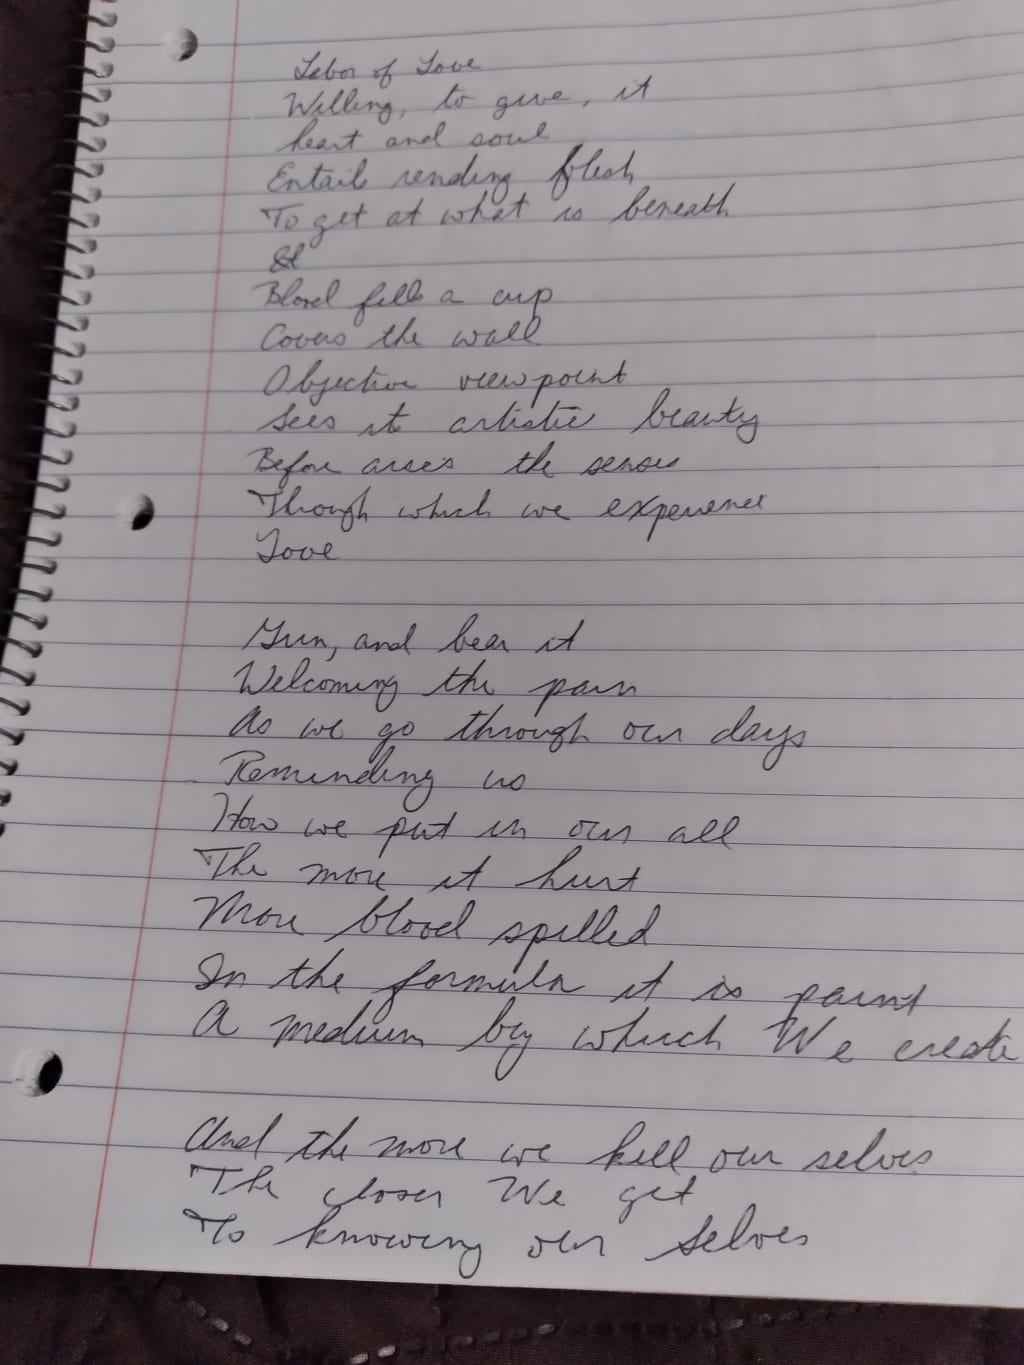 Labor of Love
Willing, to give, it
heart and soul
Entails rending flesh
To get at what is beneath
Blood fills a cup
Covers the wall
Objective viewpoint
Sees it artistic beauty
Before arises the senses
Through which we experience
Love
Grin, and bear it
Welcoming the pain
As we go through our days
Reminding us
How we put in our all
The more it hurt
More blood spilled
In the formula it is paint
A medium by which We create
And the more we kill our selves
The closer We get
To knowing our selves